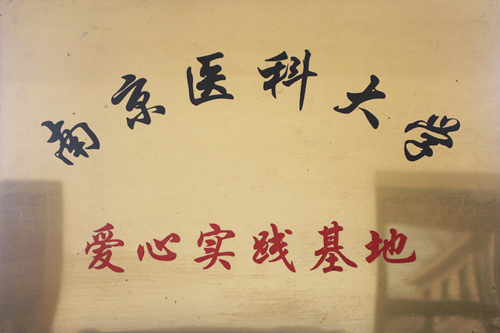 南京医科大学
爱心实践基地